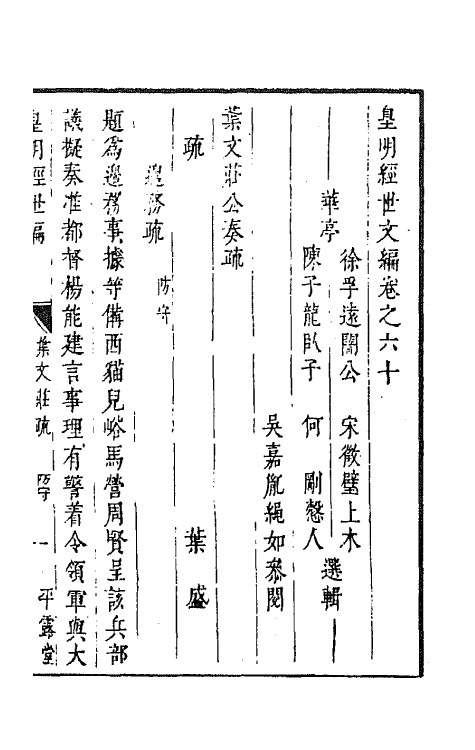 皇明經世文編卷之六十
華亭
徐孚遠闇公 宋徵璧上木
陳子龍臥子 何 剛慤人
選輯
吳嘉胤繩如叅閱
葉文莊公奏疏
疏 葉 盛
邊務疏 防守
題爲邊務事據守備西猫兒峪馬營周賢呈該兵部
議擬奏准都督楊能建言事理有警着令領軍與大
皇明經世編 葉文莊疏 防守 一 平露堂